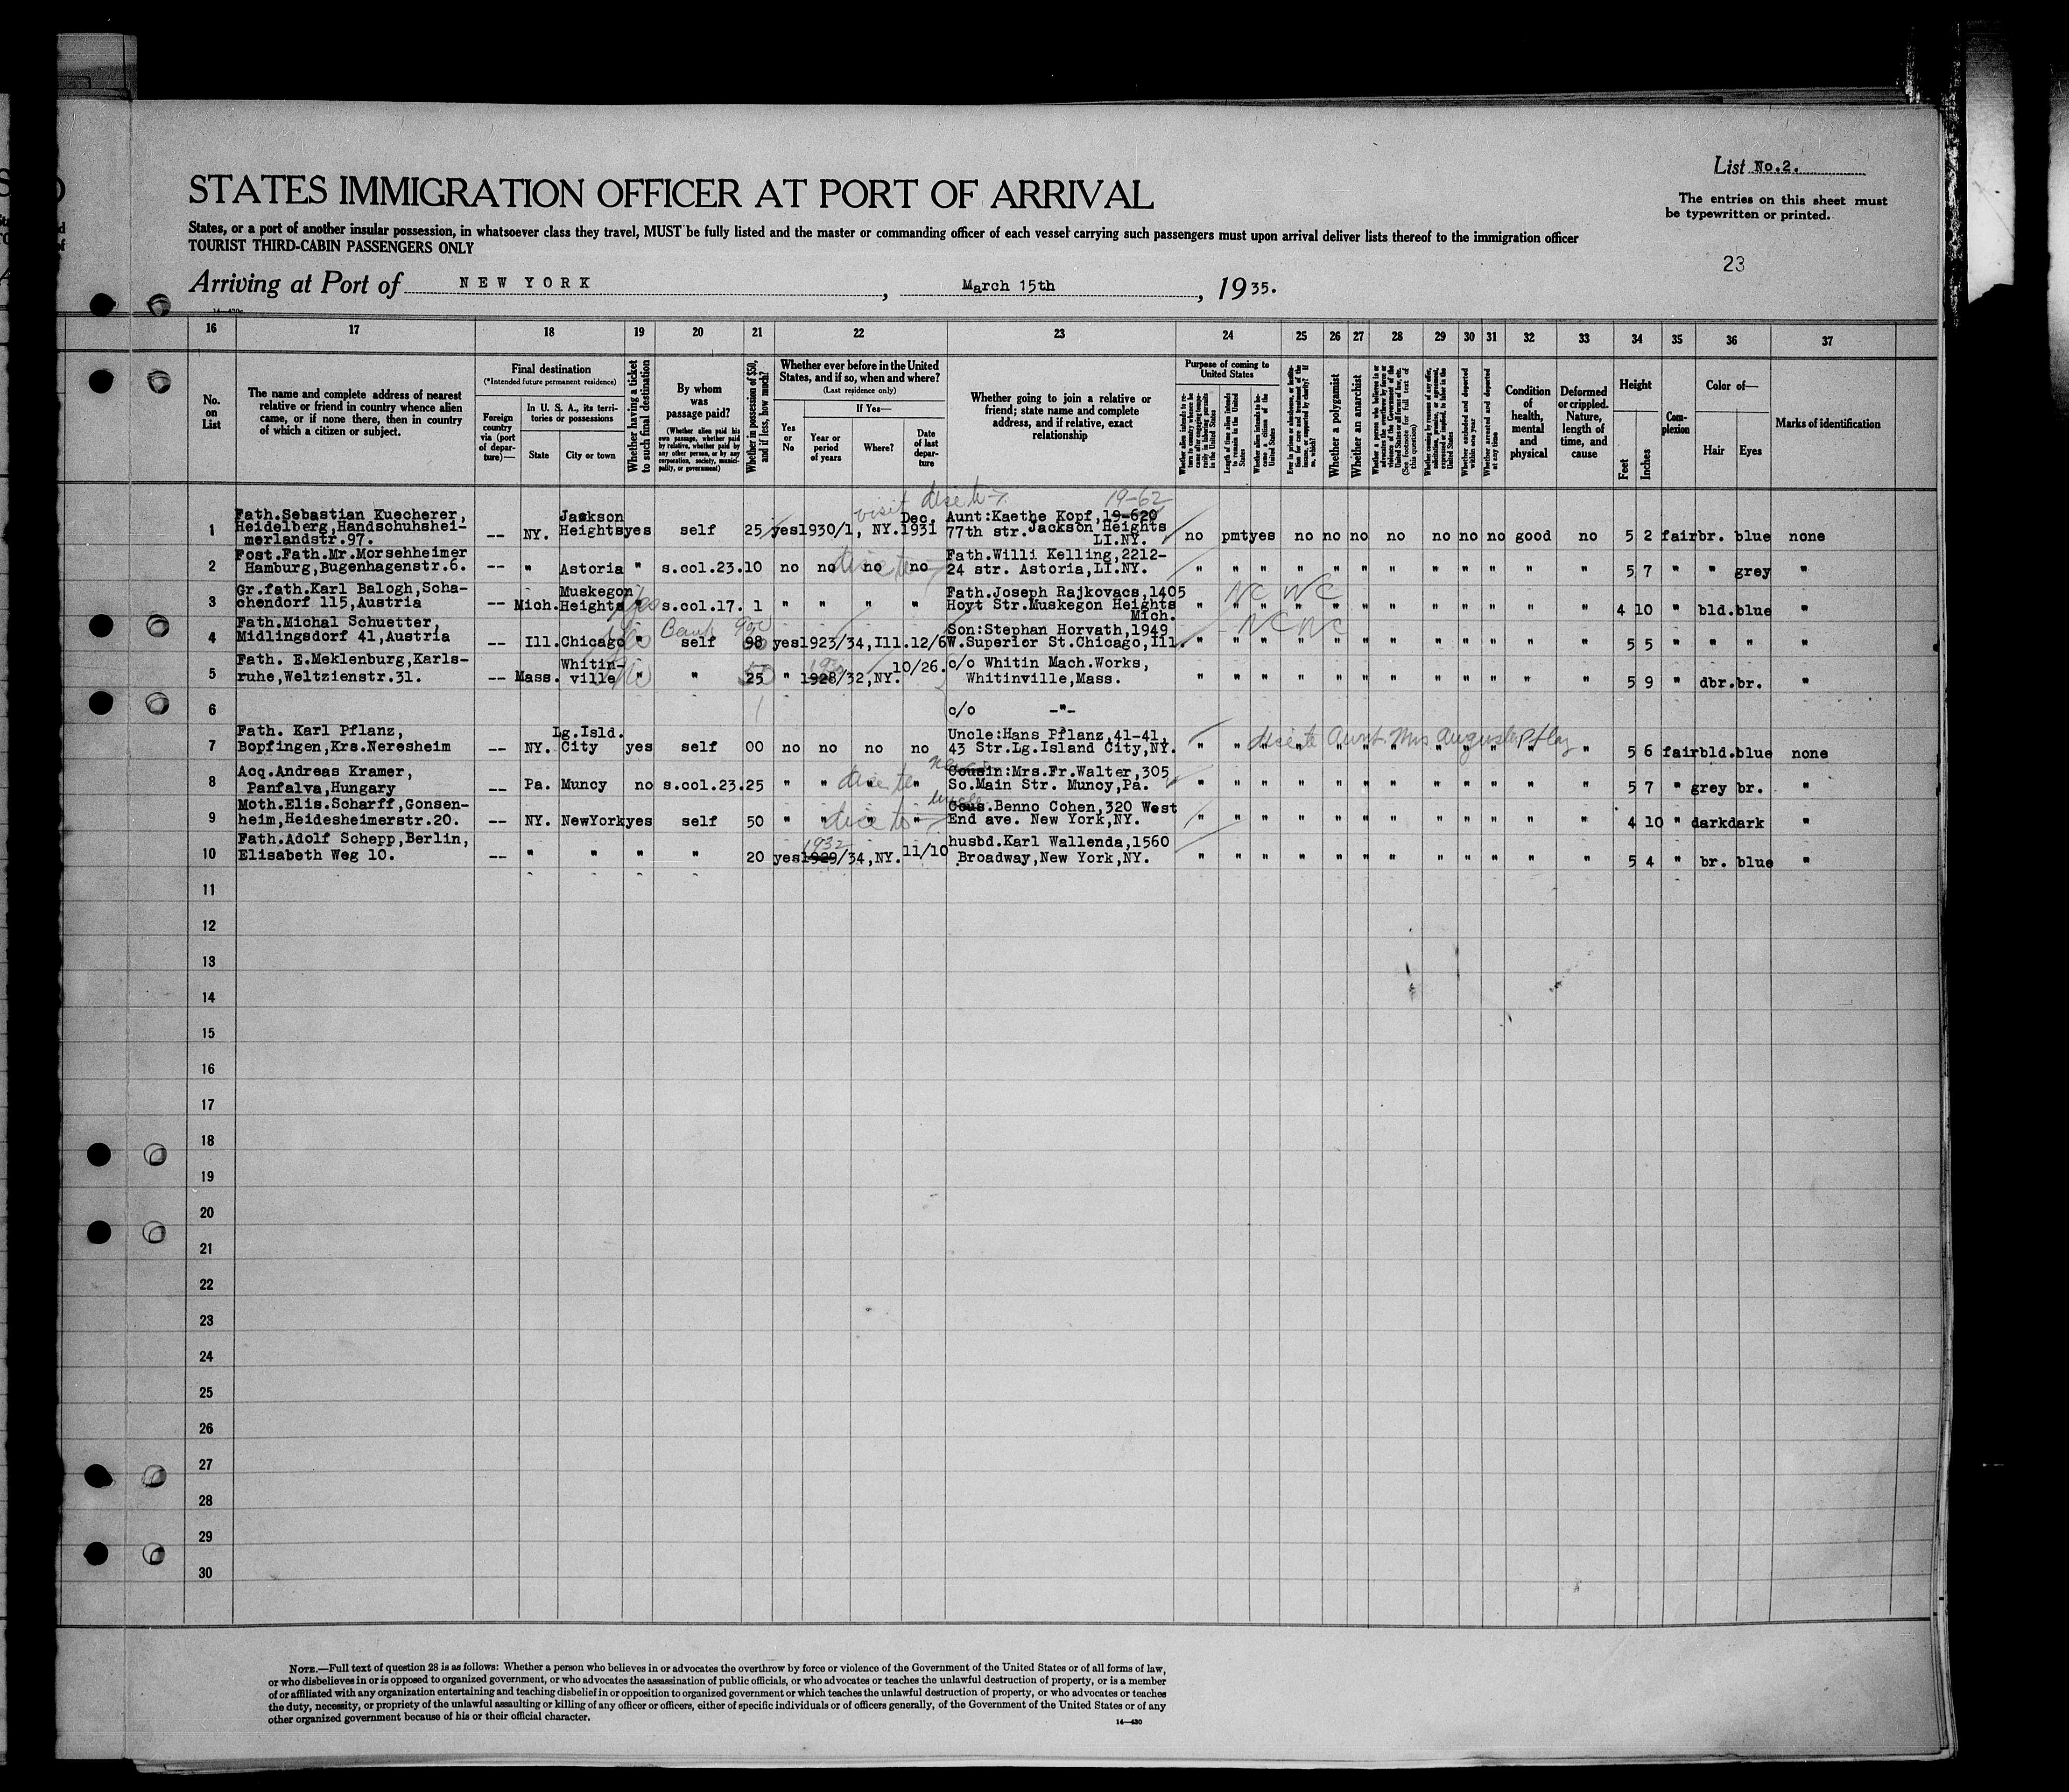 List No.2.
STATES IMMIGRATION OFFICER AT PORT OF ARRIVAL
The entries on this sheet must
be typewritten or printed.
States, or a port of another insular possession, in whatsoever class they travel, MUST be fully listed and the master or commanding officer of each vessel carrying such passengers must upon arrival deliver lists thereof to the immigration officer
TOURIST THIRD-CABIN PASSENGERS ONLY
23
Arriving at Port of NEW YORK, March 15th, 1935.
16 17 18 19 20 21 22 23 24 25 26 27 28 29 30 31 32 33 34 35 36 37
No. on List
The name and complete address of nearest
relative or friend in country whence alien
came, or if none there, then in country
of which a citizen or subject.
Final destination
(*Intended future permanent residence)
Foreign country via (port of departure)—
In U. S. A., its territories or possessions
State
City or town
Whether having a ticket to such final destination
By whom was passage paid?
(Whether alien paid his own passage, whether paid by relative, whether paid by any other person, or by any corporation, society, municipality, or government)
Whether in possession of $50, and if less, how much?
Whether ever before in the United States, and if so, when and where?
(Last residence only)
Yes or No
If Yes—
Year or period of years
Where?
Date of last departure
Whether going to join a relative or
friend; state name and complete
address, and if relative, exact
relationship
Purpose of coming to United States
Length of time alien intends to remain in the United States
Whether alien intends to become a citizen of the United States
Whether a polygamist
Whether an anarchist
Whether excluded and deported within one year
Whether arrested and deported at any time
Condition of health, mental and physical
Deformed or crippled. Nature, length of time, and cause
Height
Feet
Inches
Complexion
Color of—
Hair
Eyes
Marks of identification
visit 19-62
1 Fath.Sebastian Kuecherer, Heidelberg,Handschuhsheimerlandstr.97. -- NY. Jackson Heights yes self 25 yes 1930/1, NY. Dec. 1931 Aunt:Kaethe Kopf,19-620 77th str.Jackson Heights LI.NY. no pmt yes no no no no no no no good no 5 2 fair br. blue none
2 Fost.Fath.Mr.Morsehheimer Hamburg,Bugenhagenstr.6. -- " Astoria " s.col.23. 10 no no no no Fath.Willi Kelling,2212-24 str. Astoria,LI.NY. " " " " " " " " " " " " 5 7 " " grey "
3 Gr.fath.Karl Balogh,Schachendorf 115,Austria -- Mich. Muskegon Heights " yes s.col.17. 1 " " " " Fath.Joseph Rajkovacs,1405 Hoyt Str.Muskegon Heights Mich. NC NC " " " " " " " " " " " " 4 10 " bld. blue "
4 Fath.Michal Schuetter, Midlingsdorf 41,Austria -- Ill. Chicago " self 98 yes 1923/34,Ill. 12/6 Son:Stephan Horvath,1949 W.Superior St.Chicago,Ill. NC NC " " " " " " " " " " " " 5 5 " " " "
5 Fath. E.Meklenburg,Karlsruhe,Weltzienstr.31. -- Mass. Whitinville " " 25 " 1928/32,NY. 10/26. c/o Whitin Mach.Works, Whitinville,Mass. " " " " " " " " " " " " 5 9 " dbr. br. "
6 c/o -"-
7 Fath. Karl Pflanz, Bopfingen,Krs.Neresheim -- NY. Lg.Isld. City yes self 00 no no no no Uncle:Hans Pflanz,41-41, 43 Str.Lg.Island City,NY. " " " " " " " " " " " " Aunt Mrs 5 6 fair bld. blue none
8 Acq.Andreas Kramer, Panfalva,Hungary -- Pa. Muncy no s.col.23. 25 " " " " Cousin:Mrs.Fr.Walter,305 So.Main Str. Muncy,Pa. " " " " " " " " " " " " 5 7 " grey br. "
9 Moth.Elis.Scharff,Gonsenheim,Heidesheimerstr.20. -- NY. NewYork yes self 50 " " " " uncle Cous.Benno Cohen,320 West End ave. New York,NY. " " " " " " " " " " " " 4 10 " dark dark "
10 Fath.Adolf Schepp,Berlin, Elisabeth Weg 10. -- " " " " 20 yes 1932 1929/34,NY. 11/10 husbd.Karl Wallenda,1560 Broadway,New York,NY. " " " " " " " " " " " " 5 4 " br. blue "
11
12
13
14
15
16
17
18
19
20
21
22
23
24
25
26
27
28
29
30
NOTE.—Full text of question 28 is as follows: Whether a person who believes in or advocates the overthrow by force or violence of the Government of the United States or of all forms of law,
or who disbelieves in or is opposed to organized government, or who advocates the assassination of public officials, or who advocates or teaches the unlawful destruction of property, or is a member
of or affiliated with any organization entertaining and teaching disbelief in or opposition to organized government or which teaches the unlawful destruction of property, or who advocates or teaches
the duty, necessity, or propriety of the unlawful assaulting or killing of any officer or officers, either of specific individuals or of officers generally, of the Government of the United States or of any
other organized government because of his or their official character.
14—430